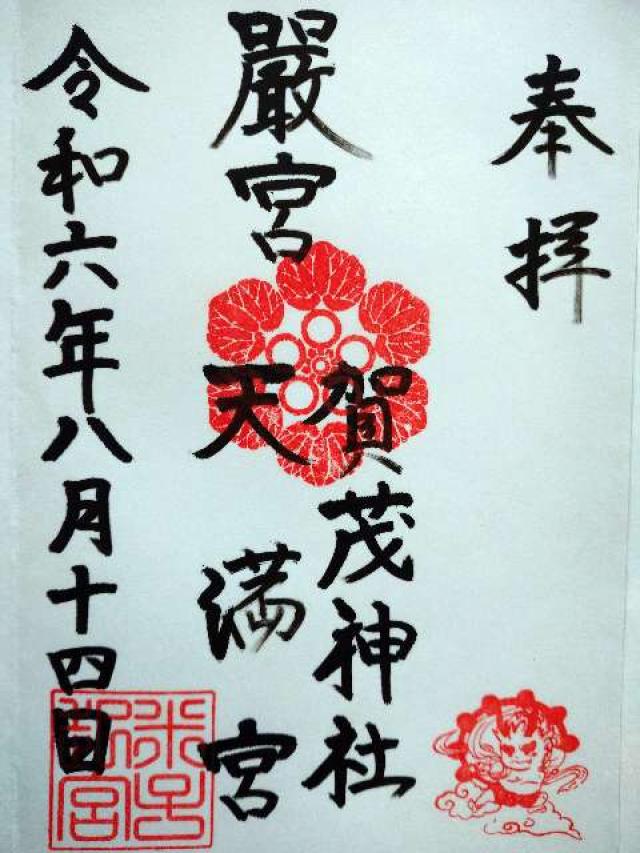 奉拝
嚴宮
賀茂神社
天満宮
令和六年八月十四日